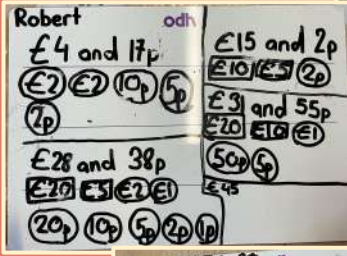 Robert odh
£4 and 17p
£2 £2 10p 5p
2p
£28 and 38p
£20 £5 £2 £1
20p 10p 5p 2p 1p
£15 and 2p
£10 £5 2p
£31 and 55p
£20 £10 £1
50p 5p
£45